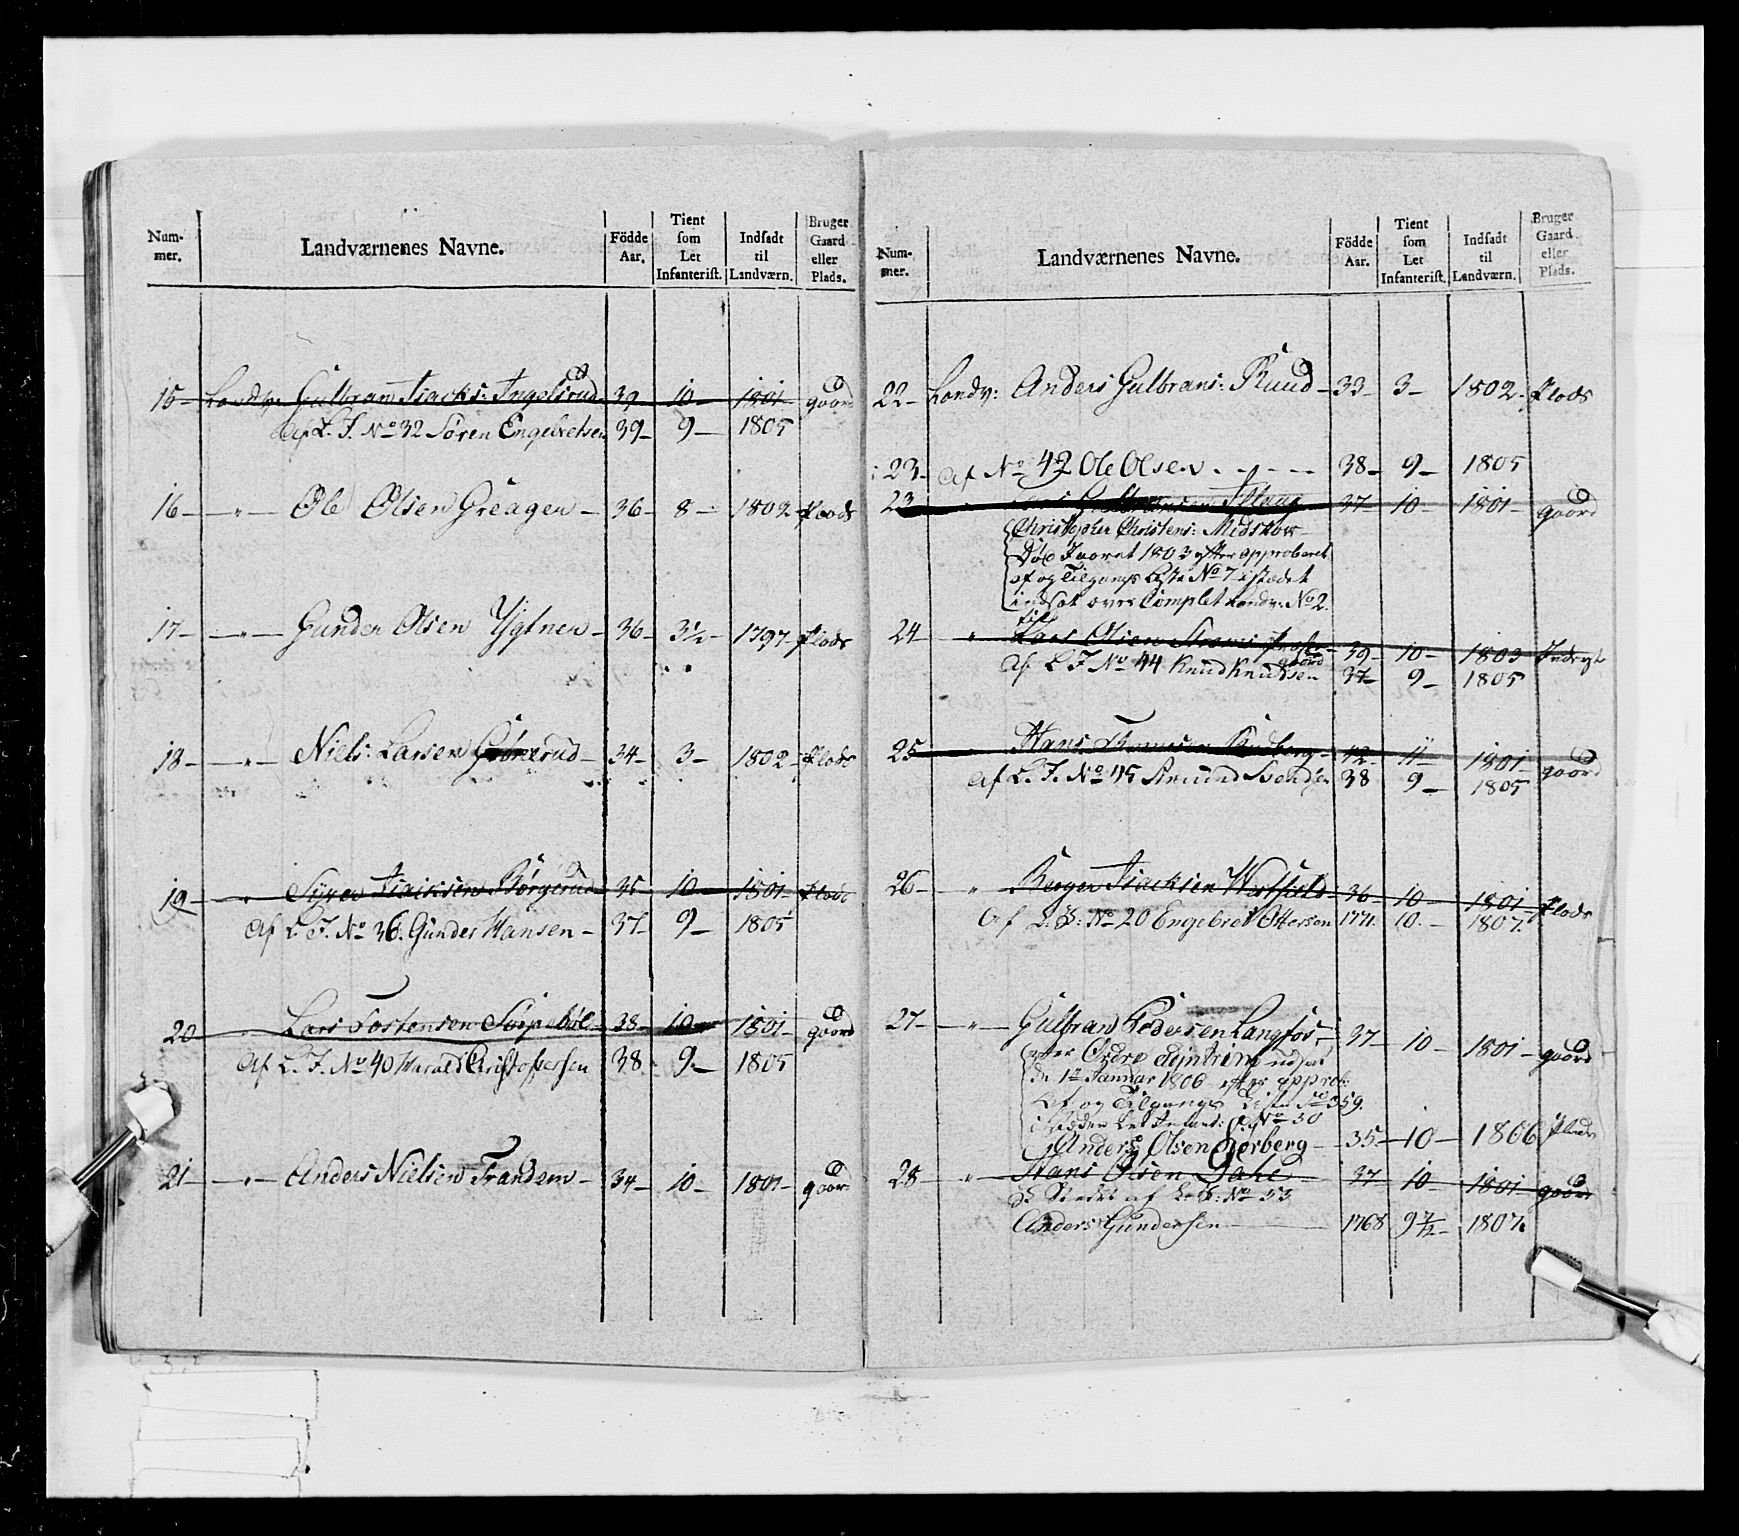 Num-
mer.
Landværnenes Navne.
Födde
Aar.
Tient
som
Let
Infanterist.
Indsadt
til
Landværn.
Bruger
Gaard
eller
Plads.
15 Landv: Gulbran Isacks: Ingelsrud 39 10 1801 gaard
Af L. I. No 32 Sören Engebretsen 39 9 1805
16 " Ole Olsen Greagen 36 8 1802 Plads
17 " Gunder Olsen 36 3½ 1797 Plads
18 " Niels Larsen 34 3 1802 Plads
19 " Isacksen Börgerud 35 10 1801 Plads
Af L. I. No 36. Gunder Hansen 37 9 1805
20 " Lars Tostensen 38 10 1801 gaard
Af L. I. No 40 Harald Christophersen 38 9 1805
21 " Anders Nielsen Trandem 34 10 1801 gaard
Num-
mer.
Landværnenes Navne.
Födde
Aar.
Tient
som
Let
Infanterist.
Indsadt
til
Landværn.
Bruger
Gaard
eller
Plads.
22 Landv: Anders Gulbrans: Ruud 33 3 1802 Plads
23 Af No 42 Ole Olsen 38 9 1805
23 37 10 1801 gaard
Christopher Christens: Midskov
Död 1803 efter approberet
af og Tilgangs Liste No 7 istædet
indsat over Complet Landv: No 2.
24 " Lars Olsen 39 10 1803
Af L I No 44 Knud Knudsen 37 9 1805
25 " Hans 42 11 1801 gaard
Af L. I. No 45 Amund Svendsen 38 9 1805
26 " Isacksen 36 10 1801 Plads
Af L. I: No 20 Engebret Ottersen 1771. 10. 1807.
27 " Gulbran Pedersen Langfos 37 10 1801 gaard
efter Ordre udsat
de 1te Januar 1806 efter approb:
Af og Tilgangs Liste No 359.
i Stæden Let Infant: No 50
Anders Olsen Berberg 35 10 1806 Plads
28 " Hans Olsen 37 10 1801 gaard
I Stædet af L. I: No 53
Anders Gundersen 1768 9 7/12 1807.